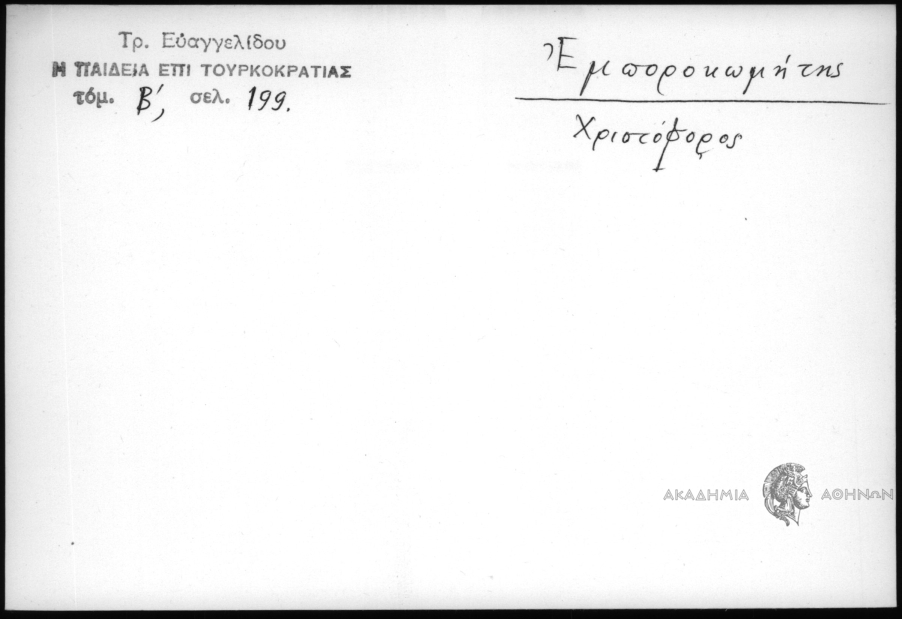 Τρ. Εὐαγγελίδου
Η ΠΑΙΔΕΙΑ ΕΠΙ ΤΟΥΡΚΟΚΡΑΤΙΑΣ
τόμ. Β΄, σελ. 199.
Ἐμποροκωμήτης
Χριστόφορος
ΑΚΑΔΗΜΙΑ ΑΘΗΝΩΝ